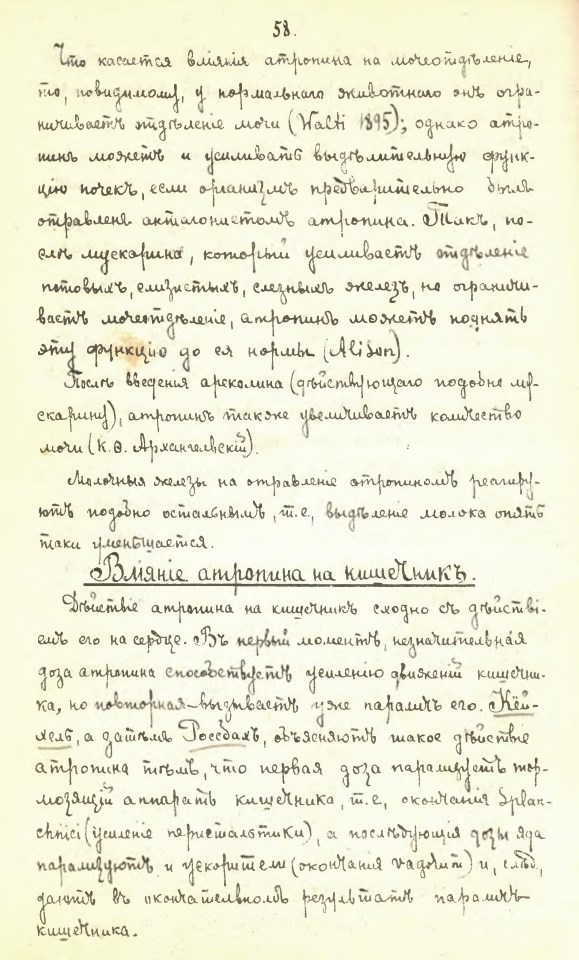 58.
Что касается вліянія атропина на мочеотдѣленіе,
то, повидимому, у нормальнаго животнаго онъ огра-
ничиваетъ отдѣленіе мочи (Walti 1895); однако атро-
пинъ можетъ и усиливать выдѣлительную функ-
цію почекъ, если организмъ предварительно былъ
отравленъ антагонистомъ атропина. Такъ, по-
слѣ мускарина, который усиливаетъ отдѣленіе
потовыхъ, слизистыхъ, слезныхъ железъ, но ограничи-
ваетъ мочеотдѣленіе, атропинъ можетъ поднять
эту функцію до ея нормы (Alison).
Послѣ введенія ареколина (дѣйствующаго подобно му-
скарину), атропинъ также увеличиваетъ количество
мочи (К. Ѳ. Архангельскій).
Молочныя железы на отравленіе атропиномъ реагиру-
ютъ подобно остальнымъ, т.е., выдѣленіе молока опять
таки уменьшается.
Вліяніе атропина на кишечникъ.
Дѣйствіе атропина на кишечникъ сходно съ дѣйстві-
емъ его на сердце. Въ первый моментъ, незначительная
доза атропина способствуетъ усиленію движеній кишечни-
ка, но повторная – вызываетъ уже параличъ его. Кёй-
хель, а затѣмъ Россбахъ, объясняютъ такое дѣйствіе
атропина тѣмъ, что первая доза парализуетъ тор-
мозящій аппаратъ кишечника, т.е., окончанія Splan-
chnici (усиленіе перистальтики), а послѣдующія дозы яда
парализуютъ и ускорители (окончанія vagorum) и, слѣд,
даютъ въ окончательномъ результатѣ параличъ
кишечника.